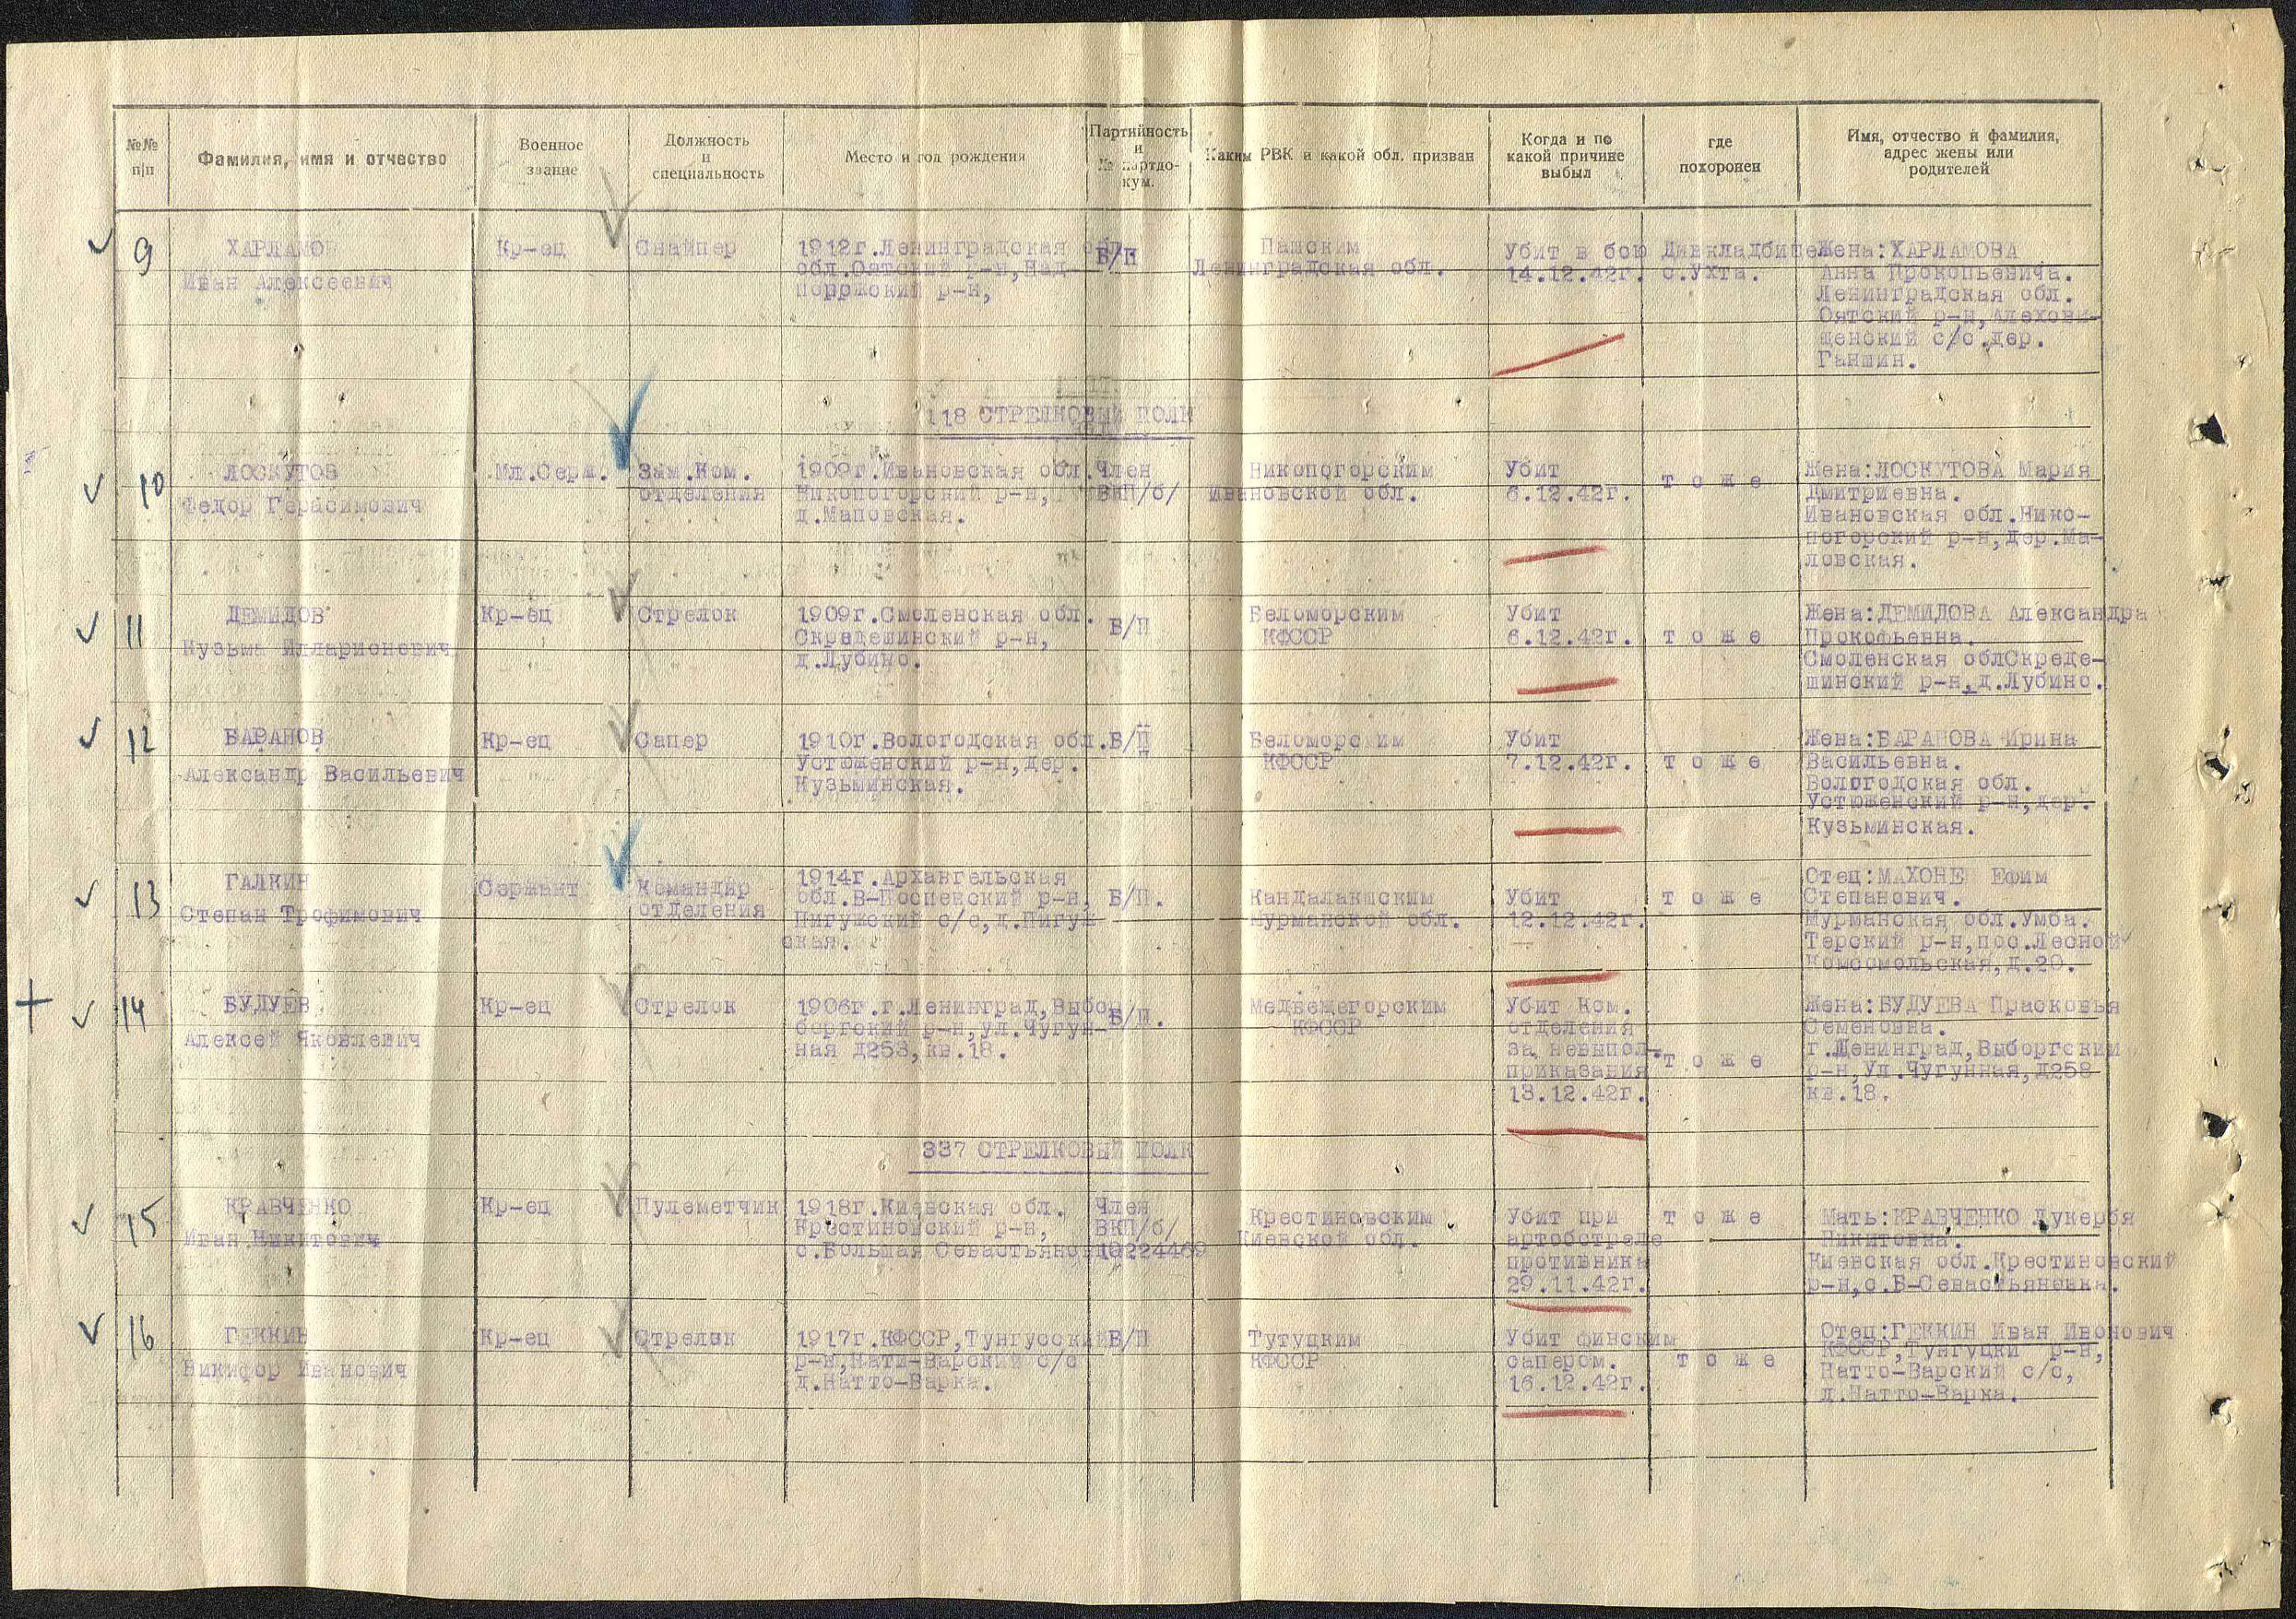 №№ п|п
Фамилия, имя и отчество
Военное звание
Должность и специальность
Место и год рождения
Партийность и № партдо-кум.
Каким РВК и какой обл. призван
Когда и по какой причине выбыл
где похоронен
Имя, отчество и фамилия, адрес жены или родителей
9
ХАРЛАМОВ
Иван Алексеевич
Кр-ец
Снайпер
1912г.Ленинградская обл.
обл.Оятский р-н,Над-
порожский р-н,
Б/П
Пашским
Ленинградская обл.
Убит в бою
14.12.42г.
Дивкладбище
с.Ухта.
Жена:ХАРЛАМОВА
Анна Прокопьевича.
Ленинградская обл.
Оятский р-н,Алехови-
щенский с/с.дер.
Ганшин.
118 СТРЕЛКОВЫЙ ПОЛК
10
ЛОСКУТОВ
Федор Герасимович
Мл.Серж.
Зам.Ком.
отделения
1909г.Ивановская обл.
Никологорский р-н,
д.Маловская.
Член
ВКП/б/
Никологорским
Ивановской обл.
Убит
6.12.42г.
т о ж е
Жена:ЛОСКУТОВА Мария
Дмитриевна.
Ивановская обл.Нико-
логорский р-н,дер.Ма-
ловская.
11
ДЕМИДОВ
Кузьма Илларионович
Кр-ец
Стрелок
1909г.Смоленская обл.
Скредешинский р-н,
д.Лубино.
Б/П
Беломорским
КФССР
Убит
6.12.42г.
т о ж е
Жена:ДЕМИДОВА Александра
Прокофьевна.
Смоленская облСкреде-
шинский р-н,д.Лубино.
12
БАРАНОВ
Александр Васильевич
Кр-ец
Сапер
1910г.Вологодская обл.
Устюженский р-н,дер.
Кузьминская.
Б/П
Беломорским
КФССР
Убит
7.12.42г.
т о ж е
Жена:БАРАНОВА Ирина
Васильевна.
Вологодская обл.
Устюженский р-н,дер.
Кузьминская.
13
ГАЛКИН
Степан Трофимович
Сержант
Командир
отделения
1914г.Архангельская
обл.В-Носпенский р-н,
Пигужский с/с,д.Пигуж-
ская.
Б/П.
Кандалакшским
Мурманской обл.
Убит
12.12.42г.
т о ж е
Отец:МАХОНЕ Ефим
Степанович.
Мурманская обл.Умба.
Терский р-н,пос.Лесной
Комсомольская,д.20.
14
БУДУЕВ
Алексей Яковлевич
Кр-ец
Стрелок
1906г.г.Ленинград,Выбор
боргский р-н,ул.Чугун-
ная д258,кв.18.
Б/П.
Медвежегорским
КФССР
Убит Ком.
отделения
за невыпол-
приказания
13.12.42г.
т о ж е
Жена:БУДУЕВА Прасковья
Семеновна.
г.Ленинград,Выборгский
р-н,Ул.Чугунная,д258
кв.18.
337 СТРЕЛКОВЫЙ ПОЛК
15
КРАВЧЕНКО
Иван Никитович
Кр-ец
Пулеметчик
1918г.Киевская обл.
Крестиновский р-н,
с.Большая Севастьяновка
Член
ВКП/б/
Крестиновским
Киевской обл.
Убит при
артобстреле
противника
29.11.42г.
т о ж е
Мать:КРАВЧЕНКО Лукерья
Никитовна.
Киевская обл.Крестиновский
р-н,с.Б-Севастьяновка.
16
ГЕККИН
Никифор Иванович
Кр-ец
Стрелок
1917г.КФССР,Тунгусский
р-н,Нати-Варский с/с
д.Натто-Варка.
Б/П
Тутуцким
КФССР
Убит финским
сапером.
16.12.42г.
т о ж е
Отец:ГЕККИН Иван Ивонович
КФССР,Тунгуцки р-н,
Натто-Варский с/с,
д.Натто-Варка.